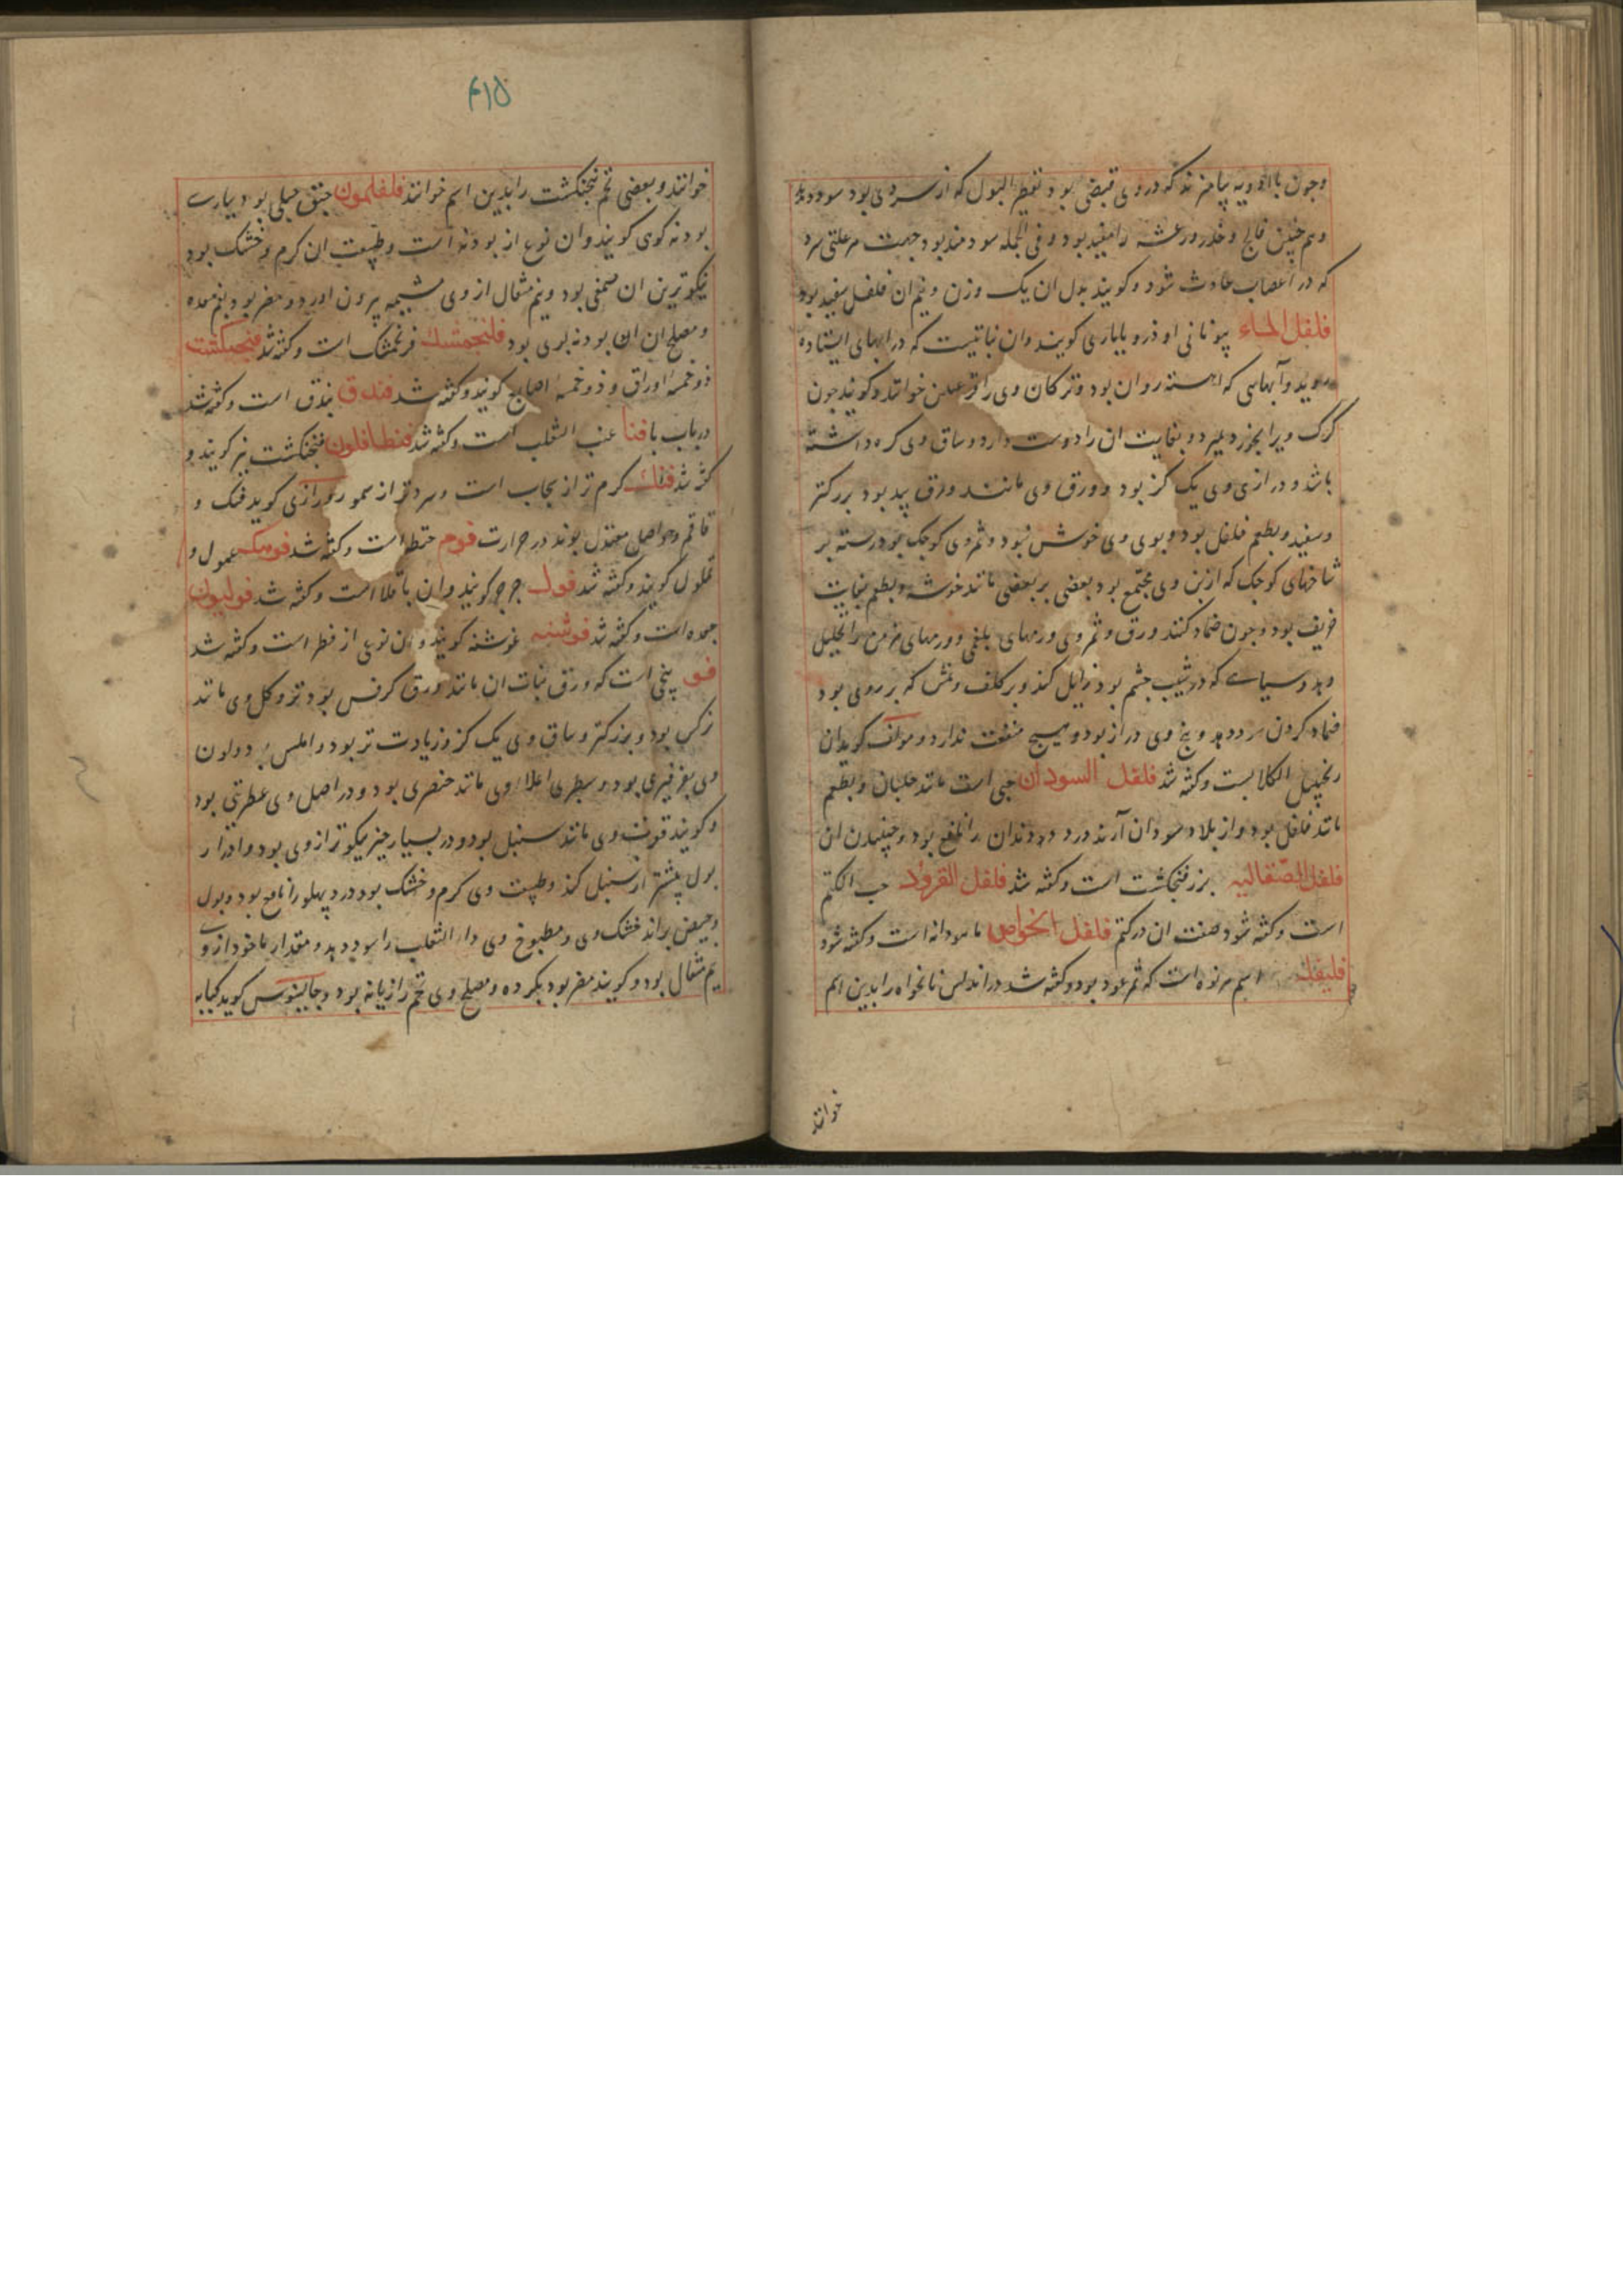 وچون با ادویه بیامیزند که در وی قبض بود تقطیر البول که از سردی بود سود دهد
وهم چنین فالج و خدر و رعشه را مفید بود و فی الجمله سودمند بود جهت هر علتی سرد
که در اعصاب حادث شود و کویند بدل ان یک وزن و نیم ان فلفل سفید بود
فلفل الماء بیونانی اوذرو یاباری کویند وان نباتیست که در ابهای ایستاده
روید و آبهایی که اهسته روان بود و ترکان وی را خوانند و کویند چون
کرک ویرا بخورد بمیرد و بغایت ان را دوست دارد و ساق وی کره داشته
باشد و درازی وی یک کز بود و ورق وی مانند ورق بید بود بزرکتر
وسفید و بطعم فلفل بود و بوی وی خوش نبود و ثمر وی کوچک بود رسته بر
شاخهای کوچک که از بن وی مجتمع بود بعضی بر بعضی مانند خوشه و بطعم بغایت
حریف بود و چون ضماد کنند ورق و ثمر وی ورمهای بلغمی و ورمهای مزمن را تحلیل
دهد و سیاهی که در شیب چشم بود زایل کند و بر کلف و نمش که بر روی بود
ضماد کردن سود دهد و بیخ وی دراز بود و هیچ منفعت ندارد و مولف کوید ان
زنجبیل الکلابست و کفته شد فلفل السودان حبی است مانند جلبان و بطعم
مانند فلفل بود و از بلاد سودان آرند درد دندان را نافع بود و جنبیدن ان
فلفل الصقالیه بزر فنجنکشت است و کفته شد فلفل القرود حب الکتم
است و کفته شود صفت ان در کتم فلفل الخواص ماهودانه است و کفته شود
فلیفله اسم هرنوه است که ثمر عود بود و کفته شد در اندلس نانخواه را بدین اسم
خوانند
۴۱۵
خوانند و بعضی تخم پنجنکشت را بدین اسم خوانند فلفلمون حبق جبلی بود بپارسی
بودنه کوهی کویند وان نوع از بودنه است و طبیعت ان کرم و خشک بود
نیکوترین ان صحفی بود و نیم مثقال از وی مشیمه بیرون اورد و مضر بود بفم معده
ومصلح ان ان بودنه بری بود فلنجمشک فرنجمشک است و کفته شد فنجنکشت
ذو خمسه اوراق و ذو خمسه اصابع کویند و کفته شد فندق بندق است و کفته شد
در باب با فنا عنب الثعلب است و کفته شد فنطافلون فنجنکشت نیز کویند و
کفته شد فنک کرم تر از سنجاب است و سردتر از سمور و رازی کوید فنک و
قاقم و حواصل معتدل بوند در حرارت فوم حنطه است و کفته شد فومیکه عمول و
غملول کویند و کفته شد فول جرجر کویند وان باقلا است و کفته شد فولیون
جعده است و کفته شد فوشنه غوشنه کویند و ان نوعی از فطر است و کفته شد
فو بیخی است که ورق نبات ان مانند ورق کرفس بود تر و کل وی مانند
نرکس بود و بزرکتر و ساق وی یک کز و زیادت تر بود و املس بود و لون
وی بفرفیری بود و سطبری اعلاء وی مانند خنصری بود و در اصل وی عطریتی بود
وکویند قوت وی مانند سنبل بود و در بسیار چیز نیکوتر از وی بود و ادرار
بول بیشتر از سنبل کند و طبیعت وی کرم و خشک بود درد پهلو را نافع بود و بول
وحیض براند خشک وی و مطبوخ وی داء الثعلب را سود دهد و مقدار ماخوذ از وی
نیم مثقال بود و کویند مضر بود بکرده و مصلح وی تخم رازیانه بود و جالینوس کوید کبابه